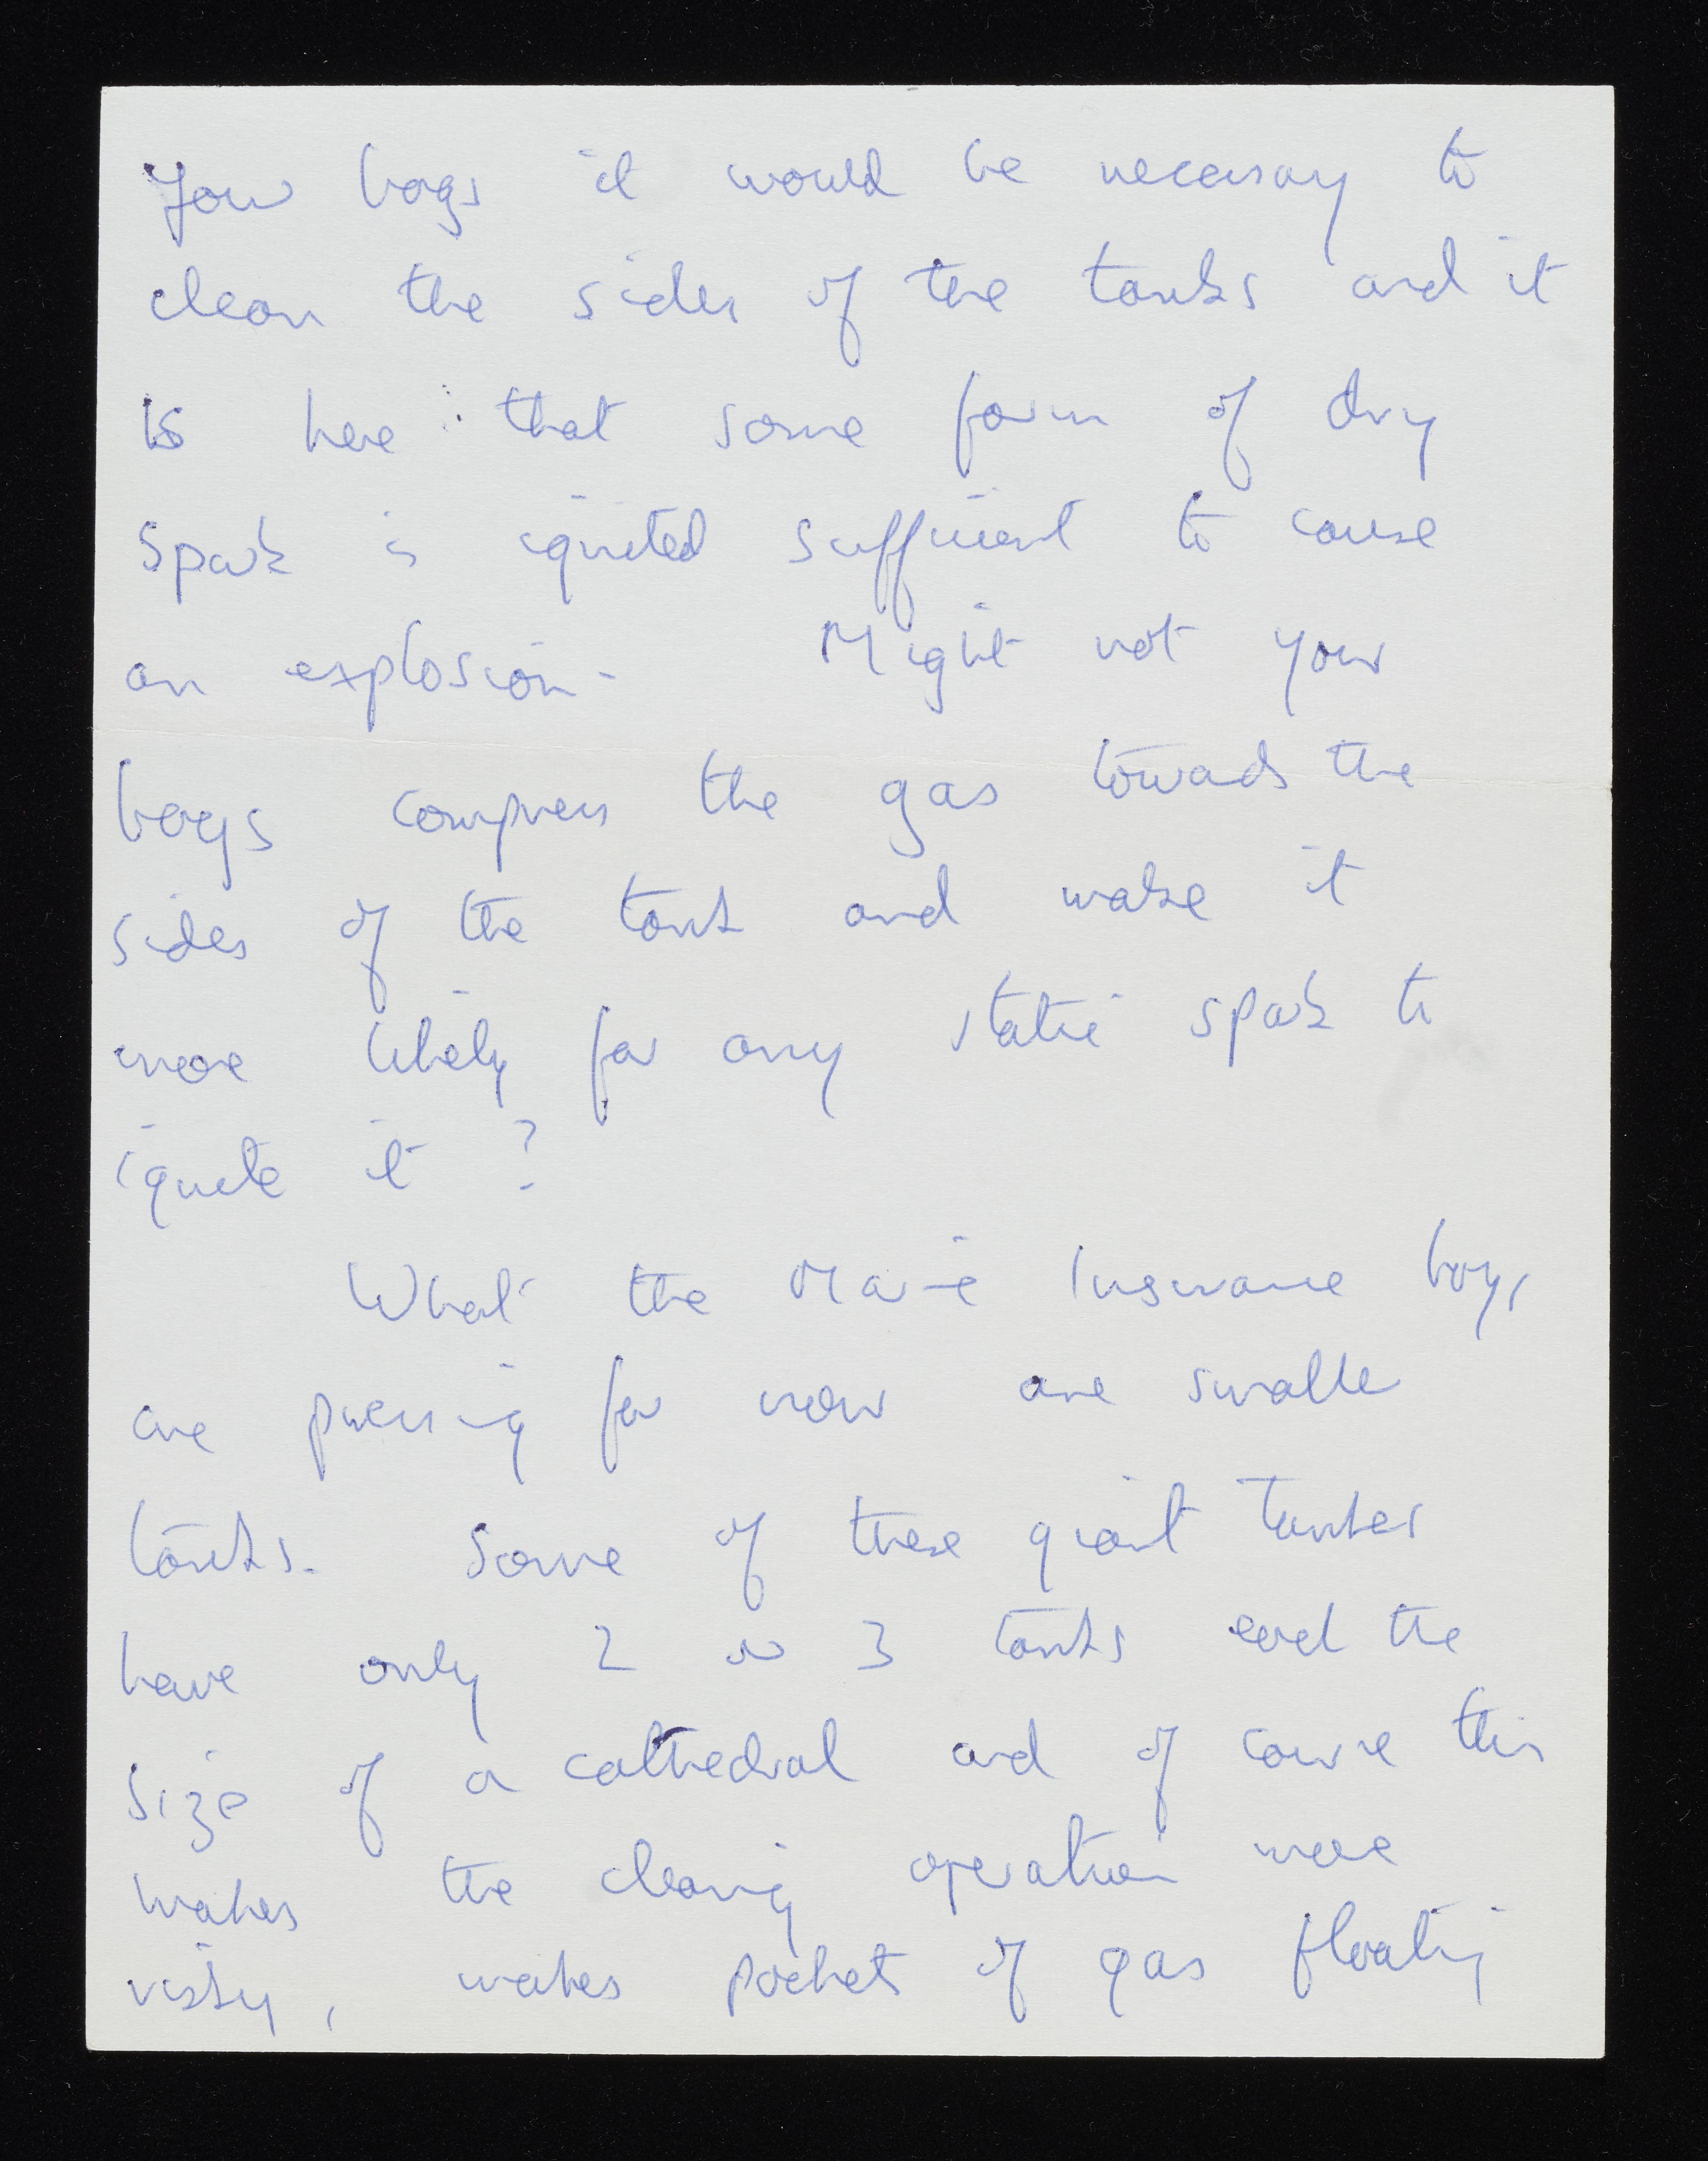 your bags it would be necessary to
clean the sides of the tanks and it
is here that some form of dry
spark is ignited sufficient to cause
an explosion. Might not your
bags compress the gas towards the
sides of the tank and make it
more likely for any static spark to
ignite it ?
What the Marine Insurance boys
are pressing for now are smaller
tanks. Some of these giant Tankers
have only 2 or 3 tanks each the
size of a cathedral and of course this
makes the cleaning operation more
risky, makes pockets of gas floating